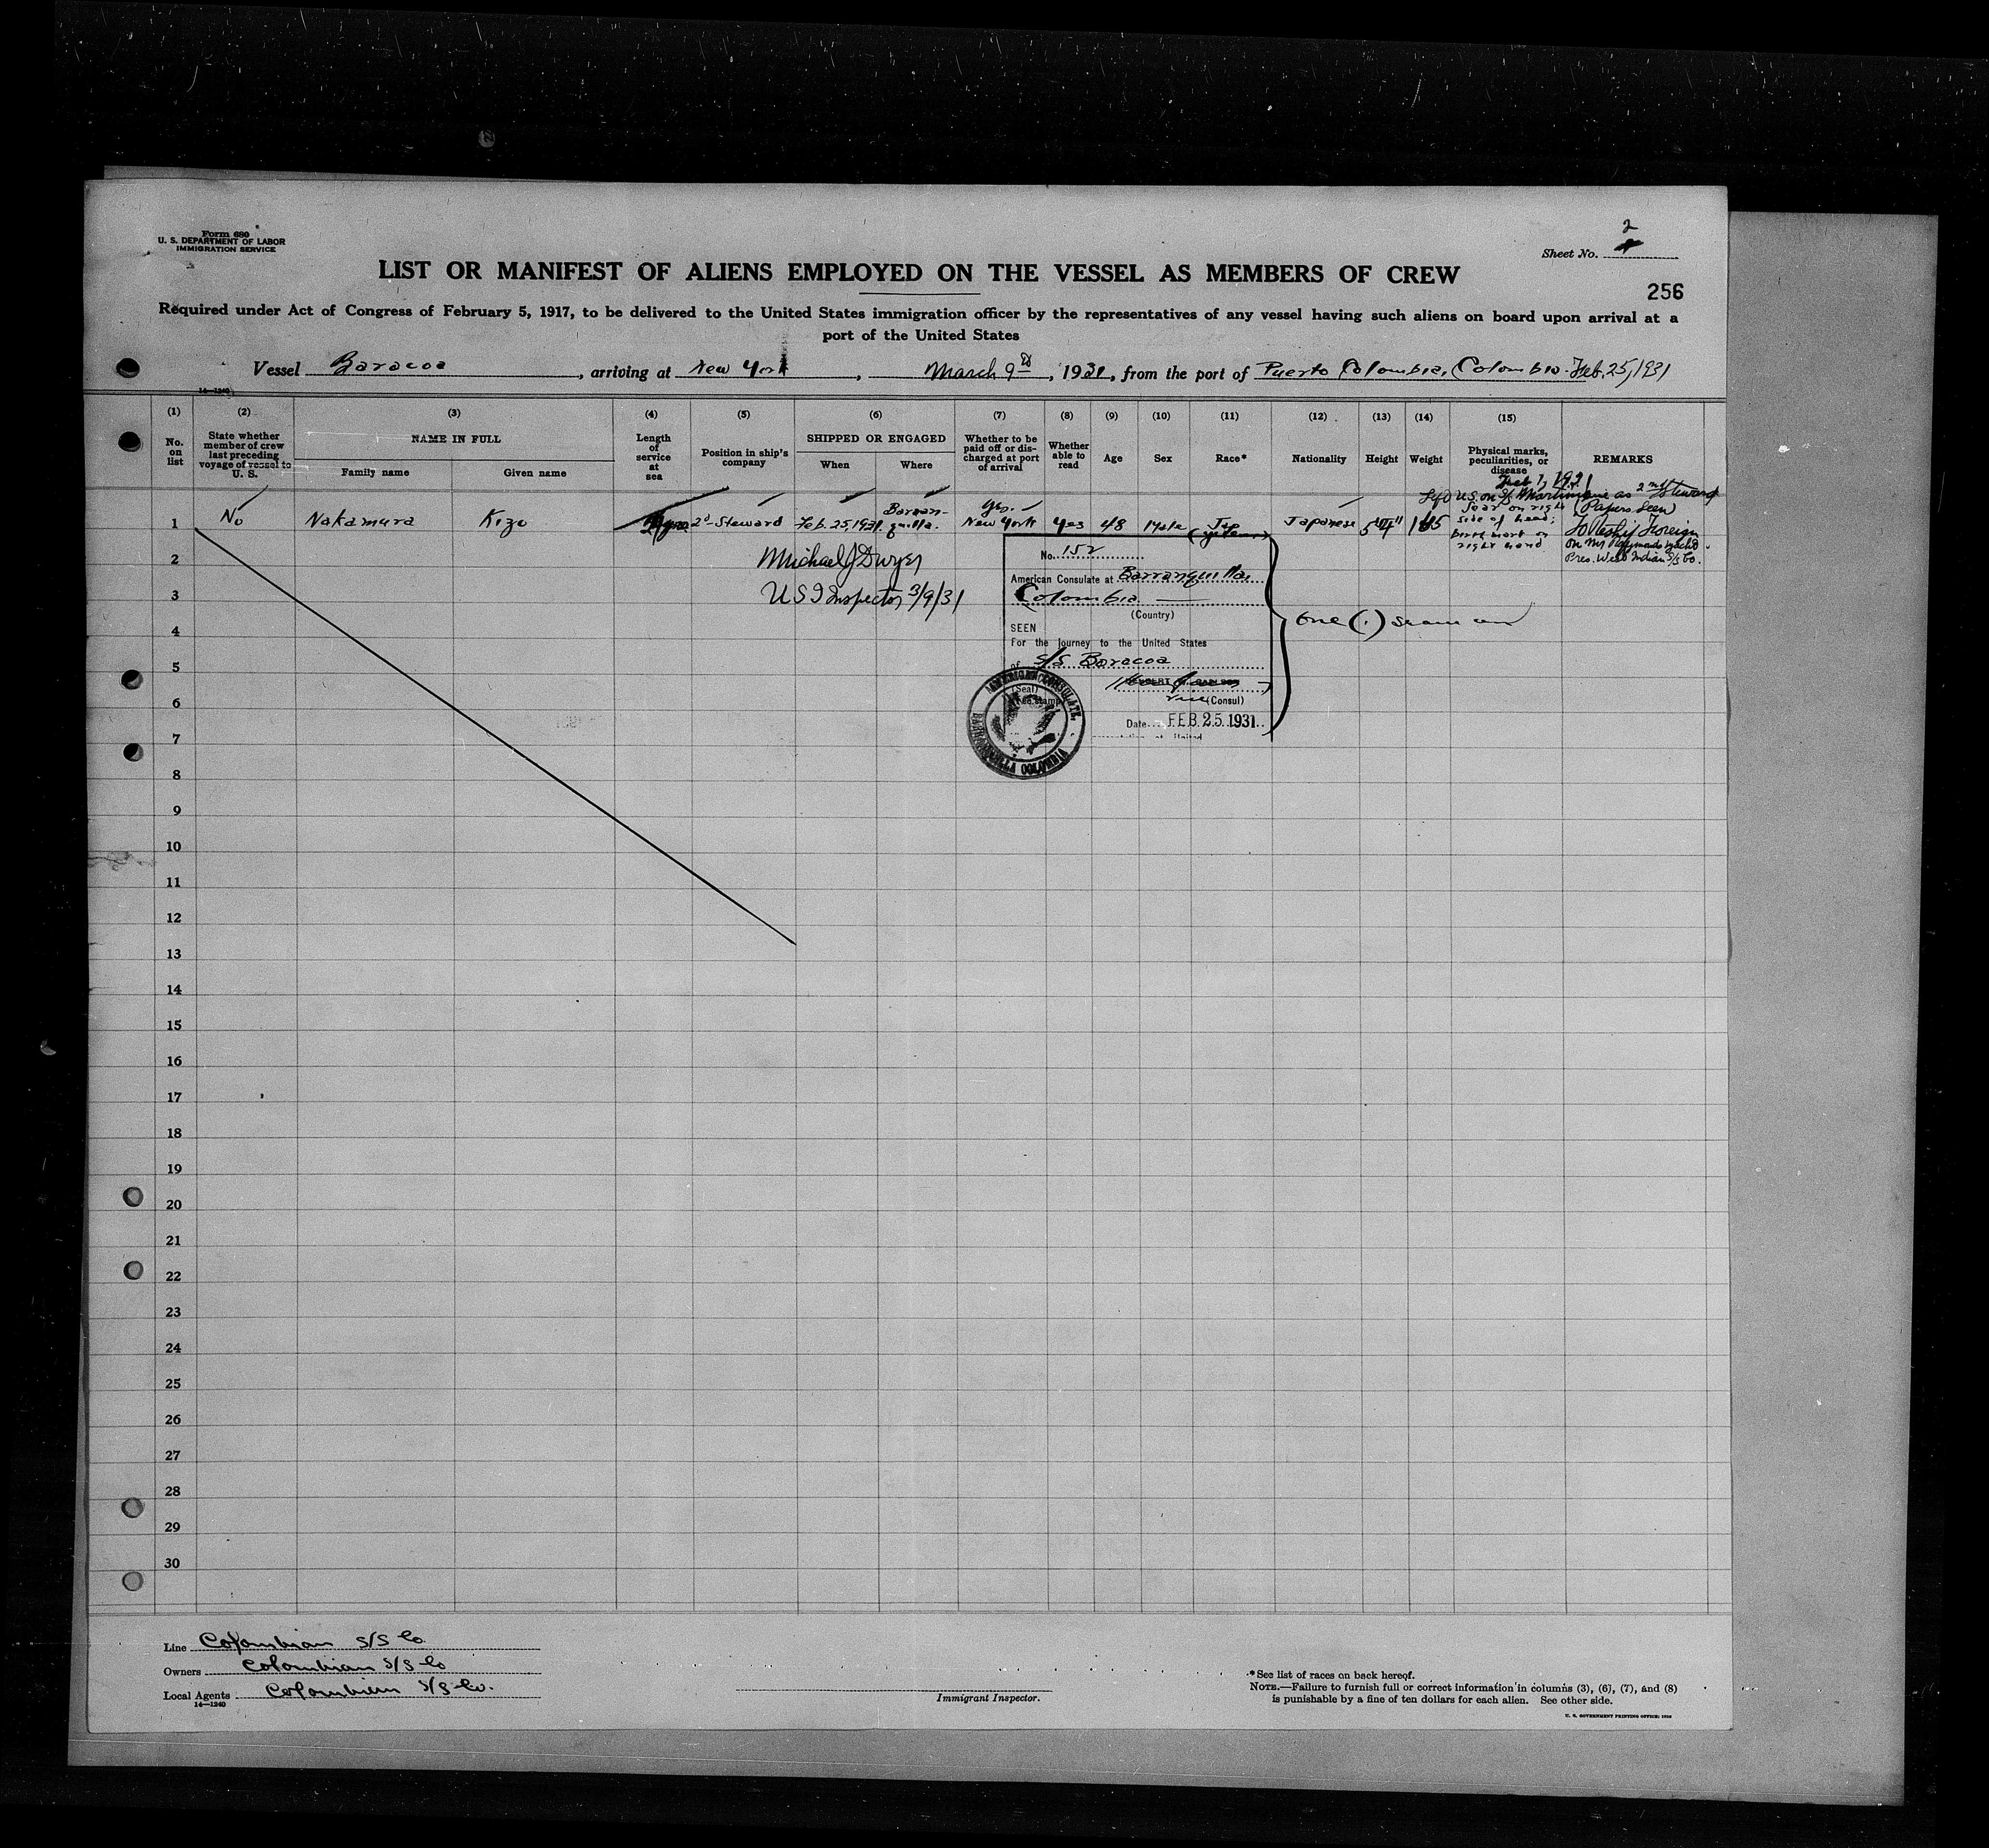 Form 680
U. S. DEPARTMENT OF LABOR
IMMIGRATION SERVICE
Sheet No. 2
LIST OR MANIFEST OF ALIENS EMPLOYED ON THE VESSEL AS MEMBERS OF CREW
256
Required under Act of Congress of February 5, 1917, to be delivered to the United States immigration officer by the representatives of any vessel having such aliens on board upon arrival at a
port of the United States
Vessel Baracoa, arriving at New York, March 9th, 1931, from the port of Puerto Colombia, Colombia. Feb. 25, 1931
14—1240
(1) (2) (3) (4) (5) (6) (7) (8) (9) (10) (11) (12) (13) (14) (15)
No. on list
State whether member of crew last preceding voyage of vessel to U. S.
NAME IN FULL
Family name
Given name
Length of service at sea
Position in ship's company
SHIPPED OR ENGAGED
When
Where
Whether to be paid off or discharged at port of arrival
Whether able to read
Age
Sex
Race*
Nationality
Height
Weight
Physical marks, peculiarities, or disease
REMARKS
Feb 7, 1931
U.S. on S/S Martinique as 2nd Steward
(Papers seen)
1 No Nakamura Kizo yrs. 2d-Steward Feb. 25, 1931. Barran-quilla. Yes. New York Yes 48 Male Jap Japanese 5'4" 165
Scar on right
side of head;
birth mark on
right hand
To Reship Foreign
on Mr Raymonds yacht
Pres. West Indian S/S Co.
Michael J Dwyer
U S I Inspector 3/9/31
No. 152
American Consulate at Barranquilla
Colombia
(Country)
SEEN
For the journey to the United States
of S/S Baracoa
(Seal)
(Fee stamp)
Vice (Consul)
Date FEB. 25. 1931
AMERICAN CONSULATE,
BARRANQUILLA COLOMBIA
One (1) seaman
2
3
4
5
6
7
8
9
10
11
12
13
14
15
16
17
18
19
20
21
22
23
24
25
26
27
28
29
30
Line Colombian S/S Co.
Owners Colombian S/S Co
Local Agents Colombian S/S Co.
14—1240
Immigrant Inspector.
*See list of races on back hereof.
NOTE.—Failure to furnish full or correct information in columns (3), (6), (7), and (8)
is punishable by a fine of ten dollars for each alien. See other side.